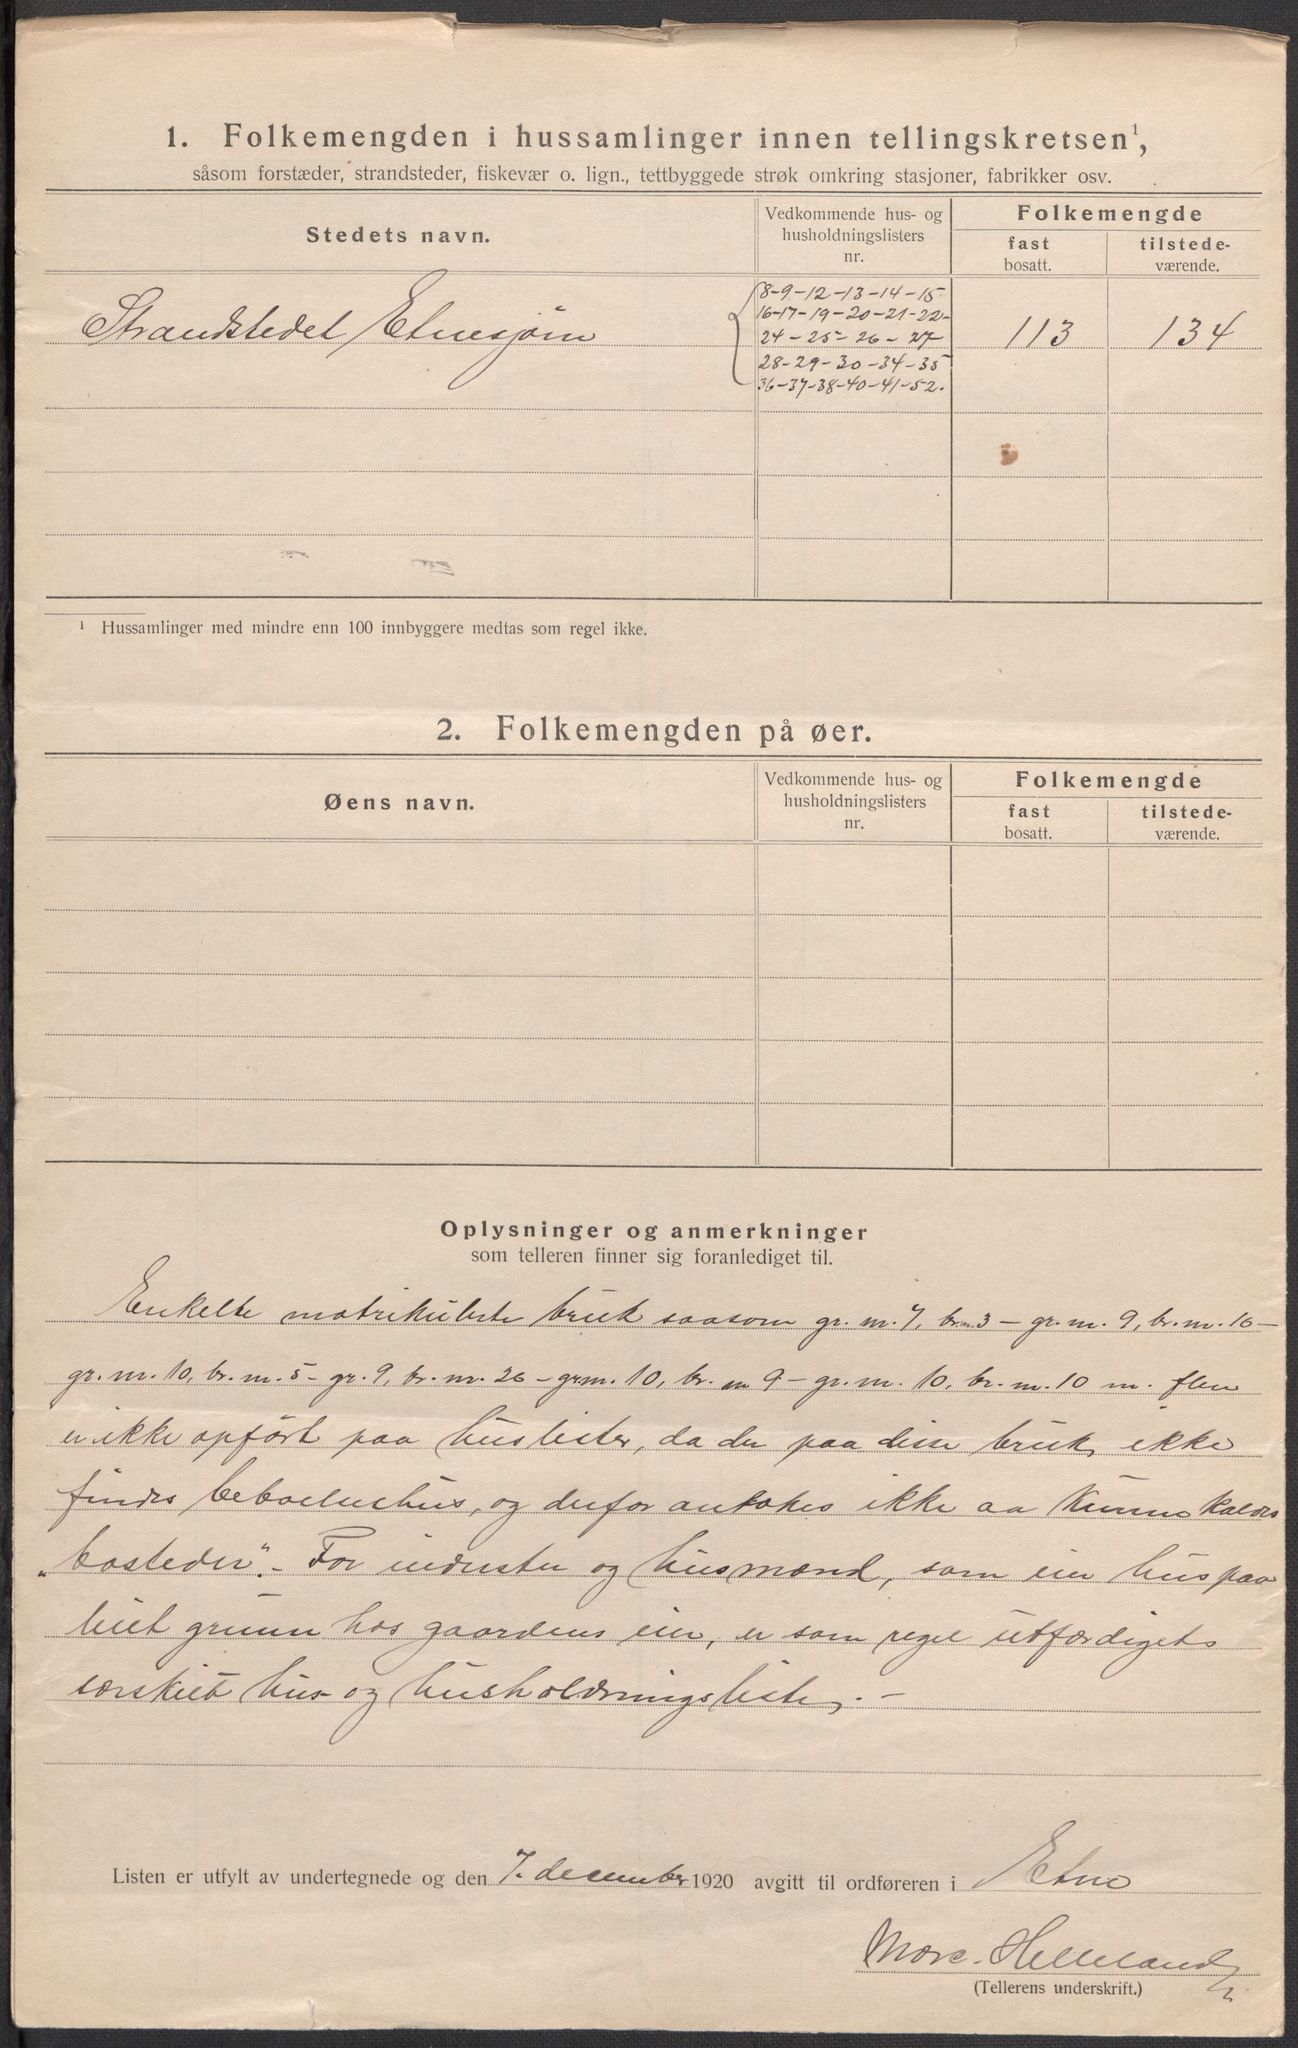 1. Folkemengden i hussamlinger innen tellingskretsen¹,
såsom forstæder, strandsteder, fiskevær o. lign., tettbyggede strøk omkring stasjoner, fabrikker osv.
Stedets navn.
Vedkommende hus- og
husholdningslisters
nr.
Folkemengde
fast
bosatt.
tilstede-
værende.
Strandstedet Etnesjøen
8-9-12-13-14-15
16-17-19-20-21-22-
24-25-26-27
28-29-30-34-35
36-37-38-40-41-52.
113
134
¹ Hussamlinger med mindre enn 100 innbyggere medtas som regel ikke.
2. Folkemengden på øer.
Øens navn.
Vedkommende hus- og
husholdningslisters
nr.
Folkemengde
fast
bosatt.
tilstede-
værende.
Oplysninger og anmerkninger
som telleren finner sig foranlediget til.
Enkelte matrikulerte bruk saasom gr. nr. 7, br.nr. 3 - gr. nr. 9, br. nr. 16 -
gr. nr. 10, br. nr. 5 - gr. 9, br. nr. 26 - grnr. 10, br. nr 9 - gr. nr. 10, br. nr. 10 m. flere
er ikke opført paa huslister, da der paa disse bruk ikke
findes beboelseshus, og derfor antakes ikke aa kunne kaldes
„bosteder". - For inderster og husmænd, som eier hus paa
leiet grunn hos gaardens eier, er som regel utfærdiget
særskilt hus- og husholdningslister. -
Listen er utfylt av undertegnede og den 7. december 1920 avgitt til ordføreren i Etne
Helleland
(Tellerens underskrift.)